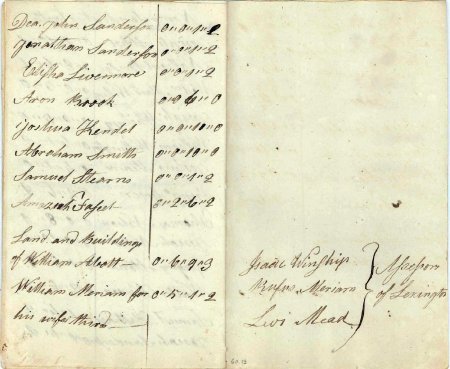 Dea. John Sanderson 0"0"1"2
Jonathan Sanderson 0"0"1"2
Elisha Livermore 0"0"1"2
Aron Brook 0"0 6"0
Joshua Kendel 0"0"10"0
Abraham Smith 0"0"10"0
Samuel Stearns 0"0"1"2
Fasset 0"2"6"2
Land and Buildings
of William Abott 0"6"9"3
William Meriam for 0"5"1"2
his wifes third
Isaac Winship
Rufus Meriam
Levi Mead
Assessors
of Lexington